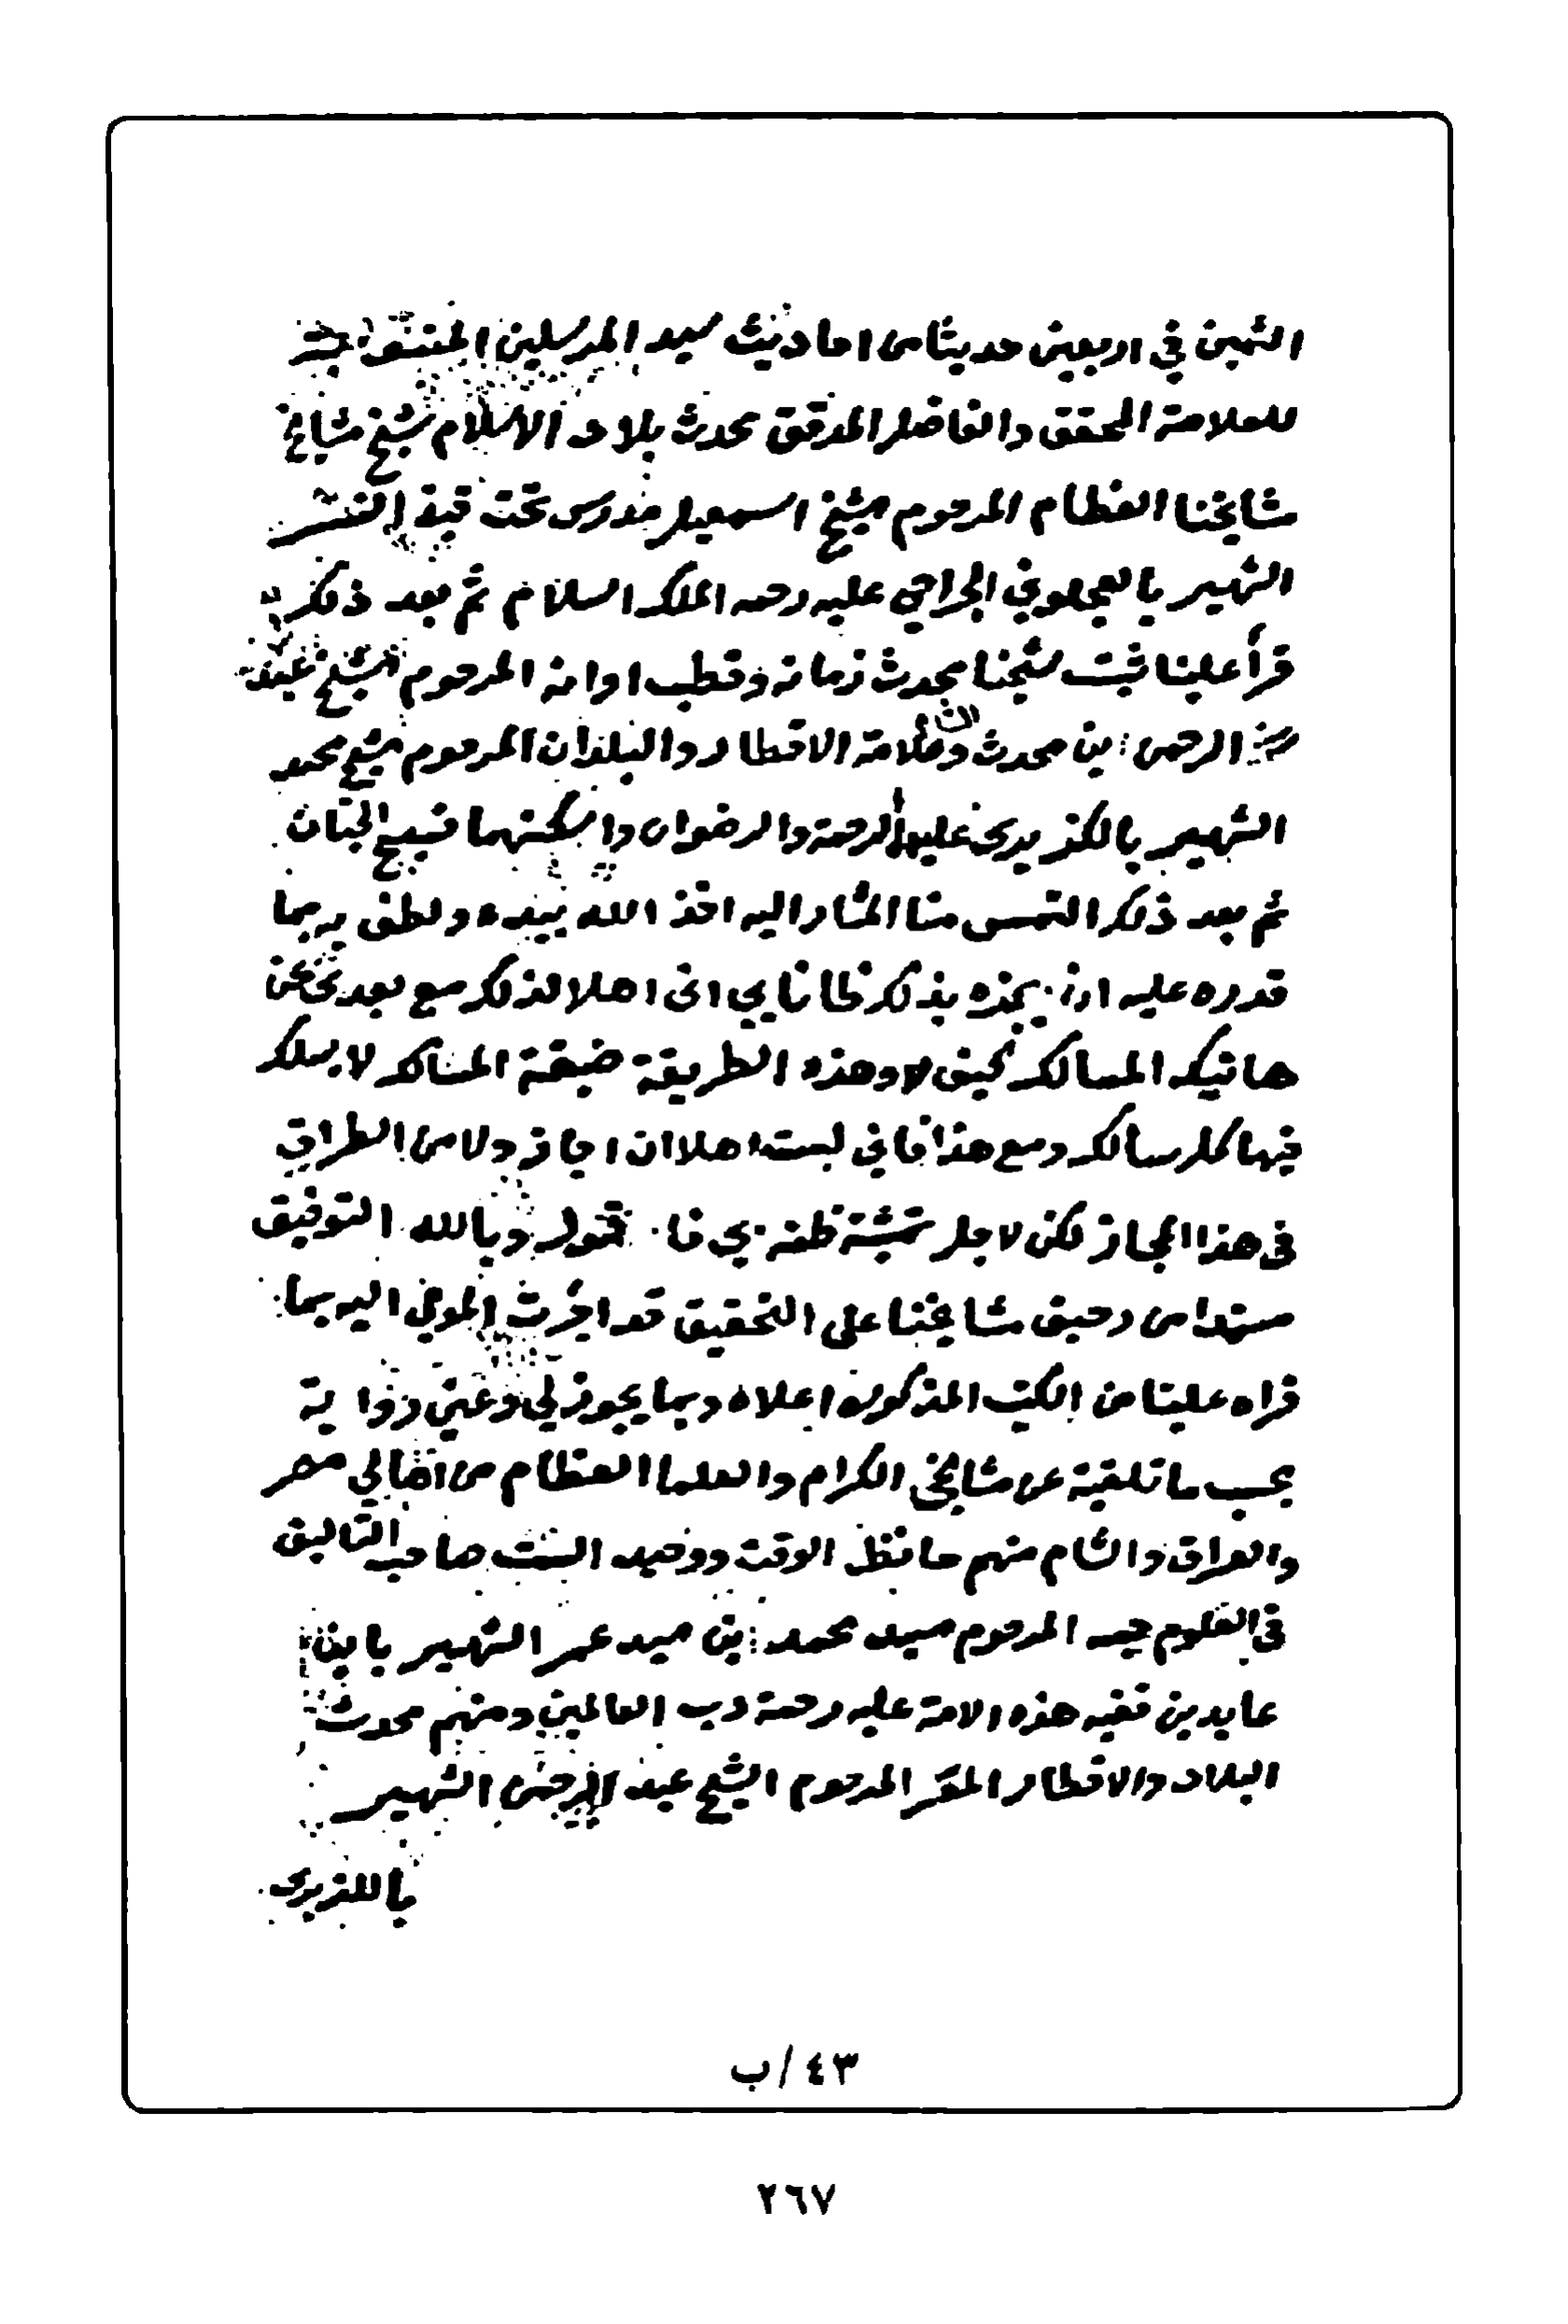 الثمين في اربعين حديثا من احاديث سيد المرسلين
للعلامة المحقق والفاضل المدقق محدث بلاد الاسلام شيخ مشايخ
مشايخنا العظام المرحوم شيخ اسمعيل مدرس تحت قبة النسر
الشهير بالعجلوني الجراحي عليه رحمه الملك السلام ثم بعد ذلك
قرأ علينا ثبت شيخنا محدث زمانه وقطب اوانه المرحوم شيخ عبد
الرحمن بن محدث وعلامة الاقطار والبلدان المرحوم شيخ محمد
الشهير بالكزبري عليهما الرحمة والرضوان واسكنهما فسيح الجنان
ثم بعد ذلك التمس منا المشار اليه اخذ الله بيده ولطف به بما
قدره عليه ان يجزه بذلك ظانا بي اني اهلا لذلك مع بعدي عن
هاتيك المسالك كيف لا وهذه الطريقة ضيقة المناكب لا يسلك
فيها كل سالك ومع هذا فاني لست اهلا ان اجاز ولا من الطراق
في هذا المجاز لكن لاجل تمشية ظنه بي فا قول وبالله التوفيق
مستمدا من رحيق مشايخنا على التحقيق قد اجزت المومى اليه بما
قراه علينا من الكتب المذكوره اعلاه وبما يجوز لي وعني رواية
بحسب ما تلقيته عن مشايخي الكرام والعلما العظام من اهالي مصر
والعراق والشام منهم حافظ الوقت ووحيد الست صاحب التاليف
في العلوم المرحوم سيد محمد بن سيد عمر الشهير بابن
عابدين فقيه هذه الامة عليه رحمة رب العالمين ومنهم محدث
البلاد والاقطار المرحوم الشيخ عبد الرحمن الشهير
بالكزبري
٤٣/ب
٢٦٧